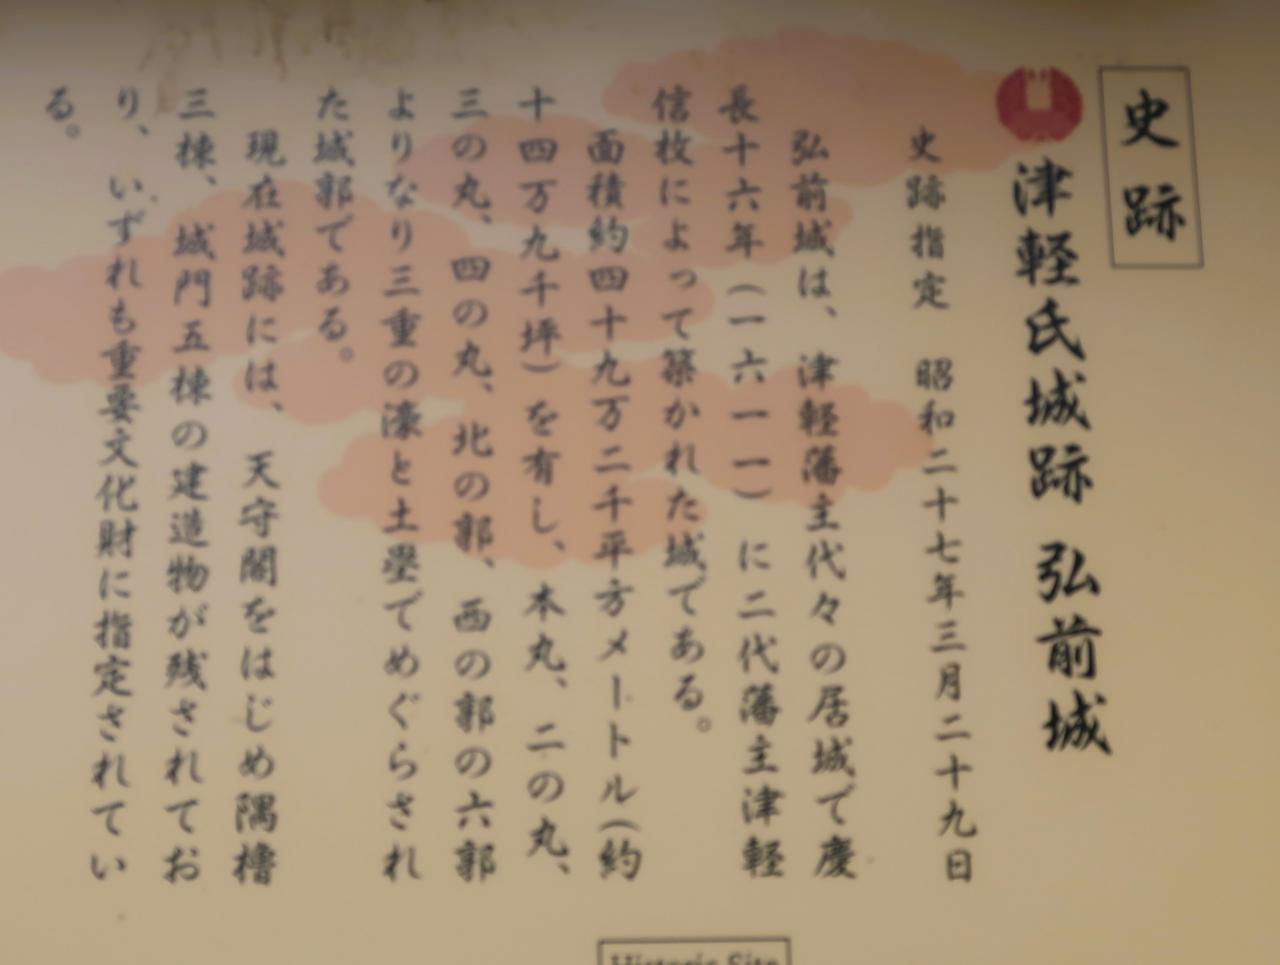 史跡
津軽氏城跡 弘前城
史跡指定 昭和二十七年三月二十九日
弘前城は、津軽藩主代々の居城で慶
長十六年(一六一一)に二代藩主津軽
信枚によって築かれた城である。
面積約四十九万二千平方メートル(約
十四万九千坪)を有し、本丸、二の丸、
三の丸、四の丸、北の郭、西の郭の六郭
よりなり三重の濠と土塁でめぐらされ
た城郭である。
現在城跡には、天守閣をはじめ隅櫓
三棟、城門五棟の建造物が残されてお
り、いずれも重要文化財に指定されてい
る。
Historic Site